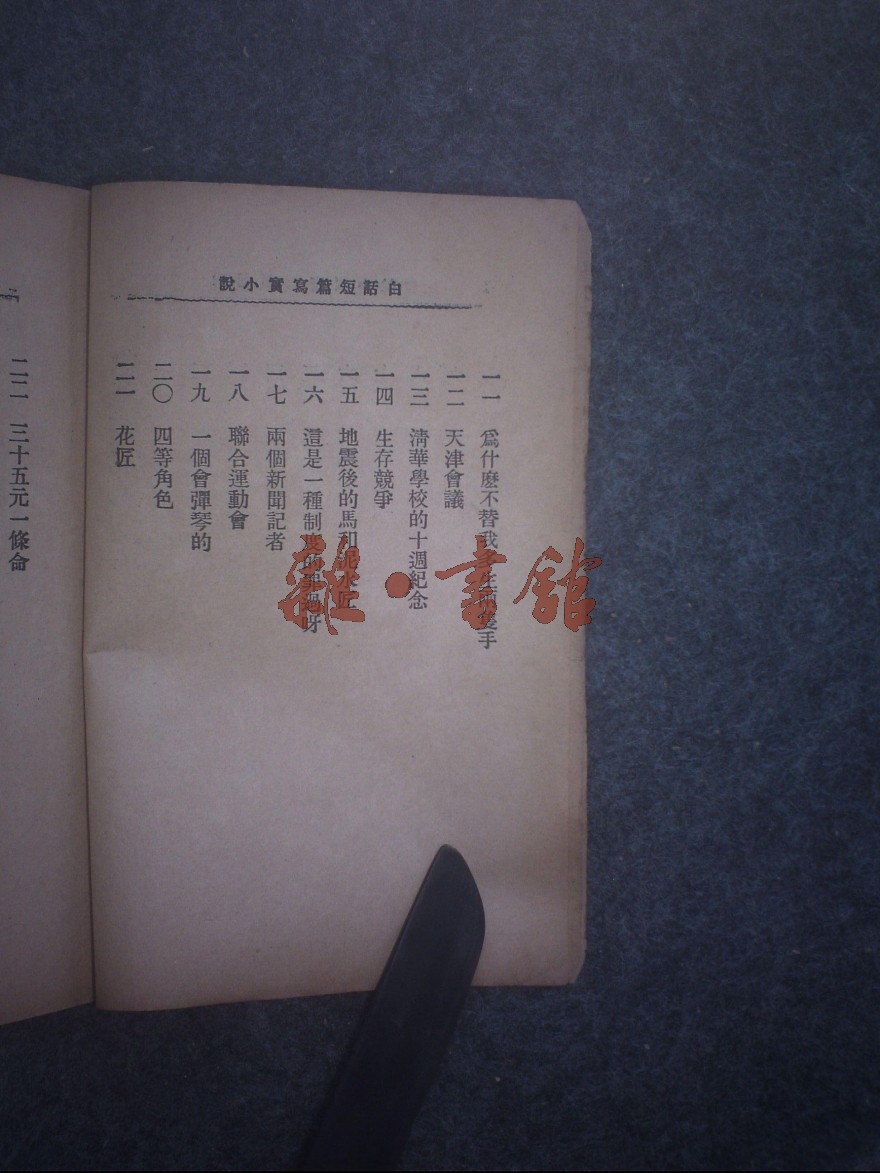 白話短篇寫實小說
一一 爲什麼不替我多生兩隻手
一二 天津會議
一三 清華學校的十週紀念
一四 生存競爭
一五 地震後的馬和泥水匠
一六 這是一種制度的罪過呀
一七 兩個新聞記者
一八 聯合運動會
一九 一個會彈琴的
二〇 四等角色
二一 花匠
二二 三十五元一條命
雜·書館